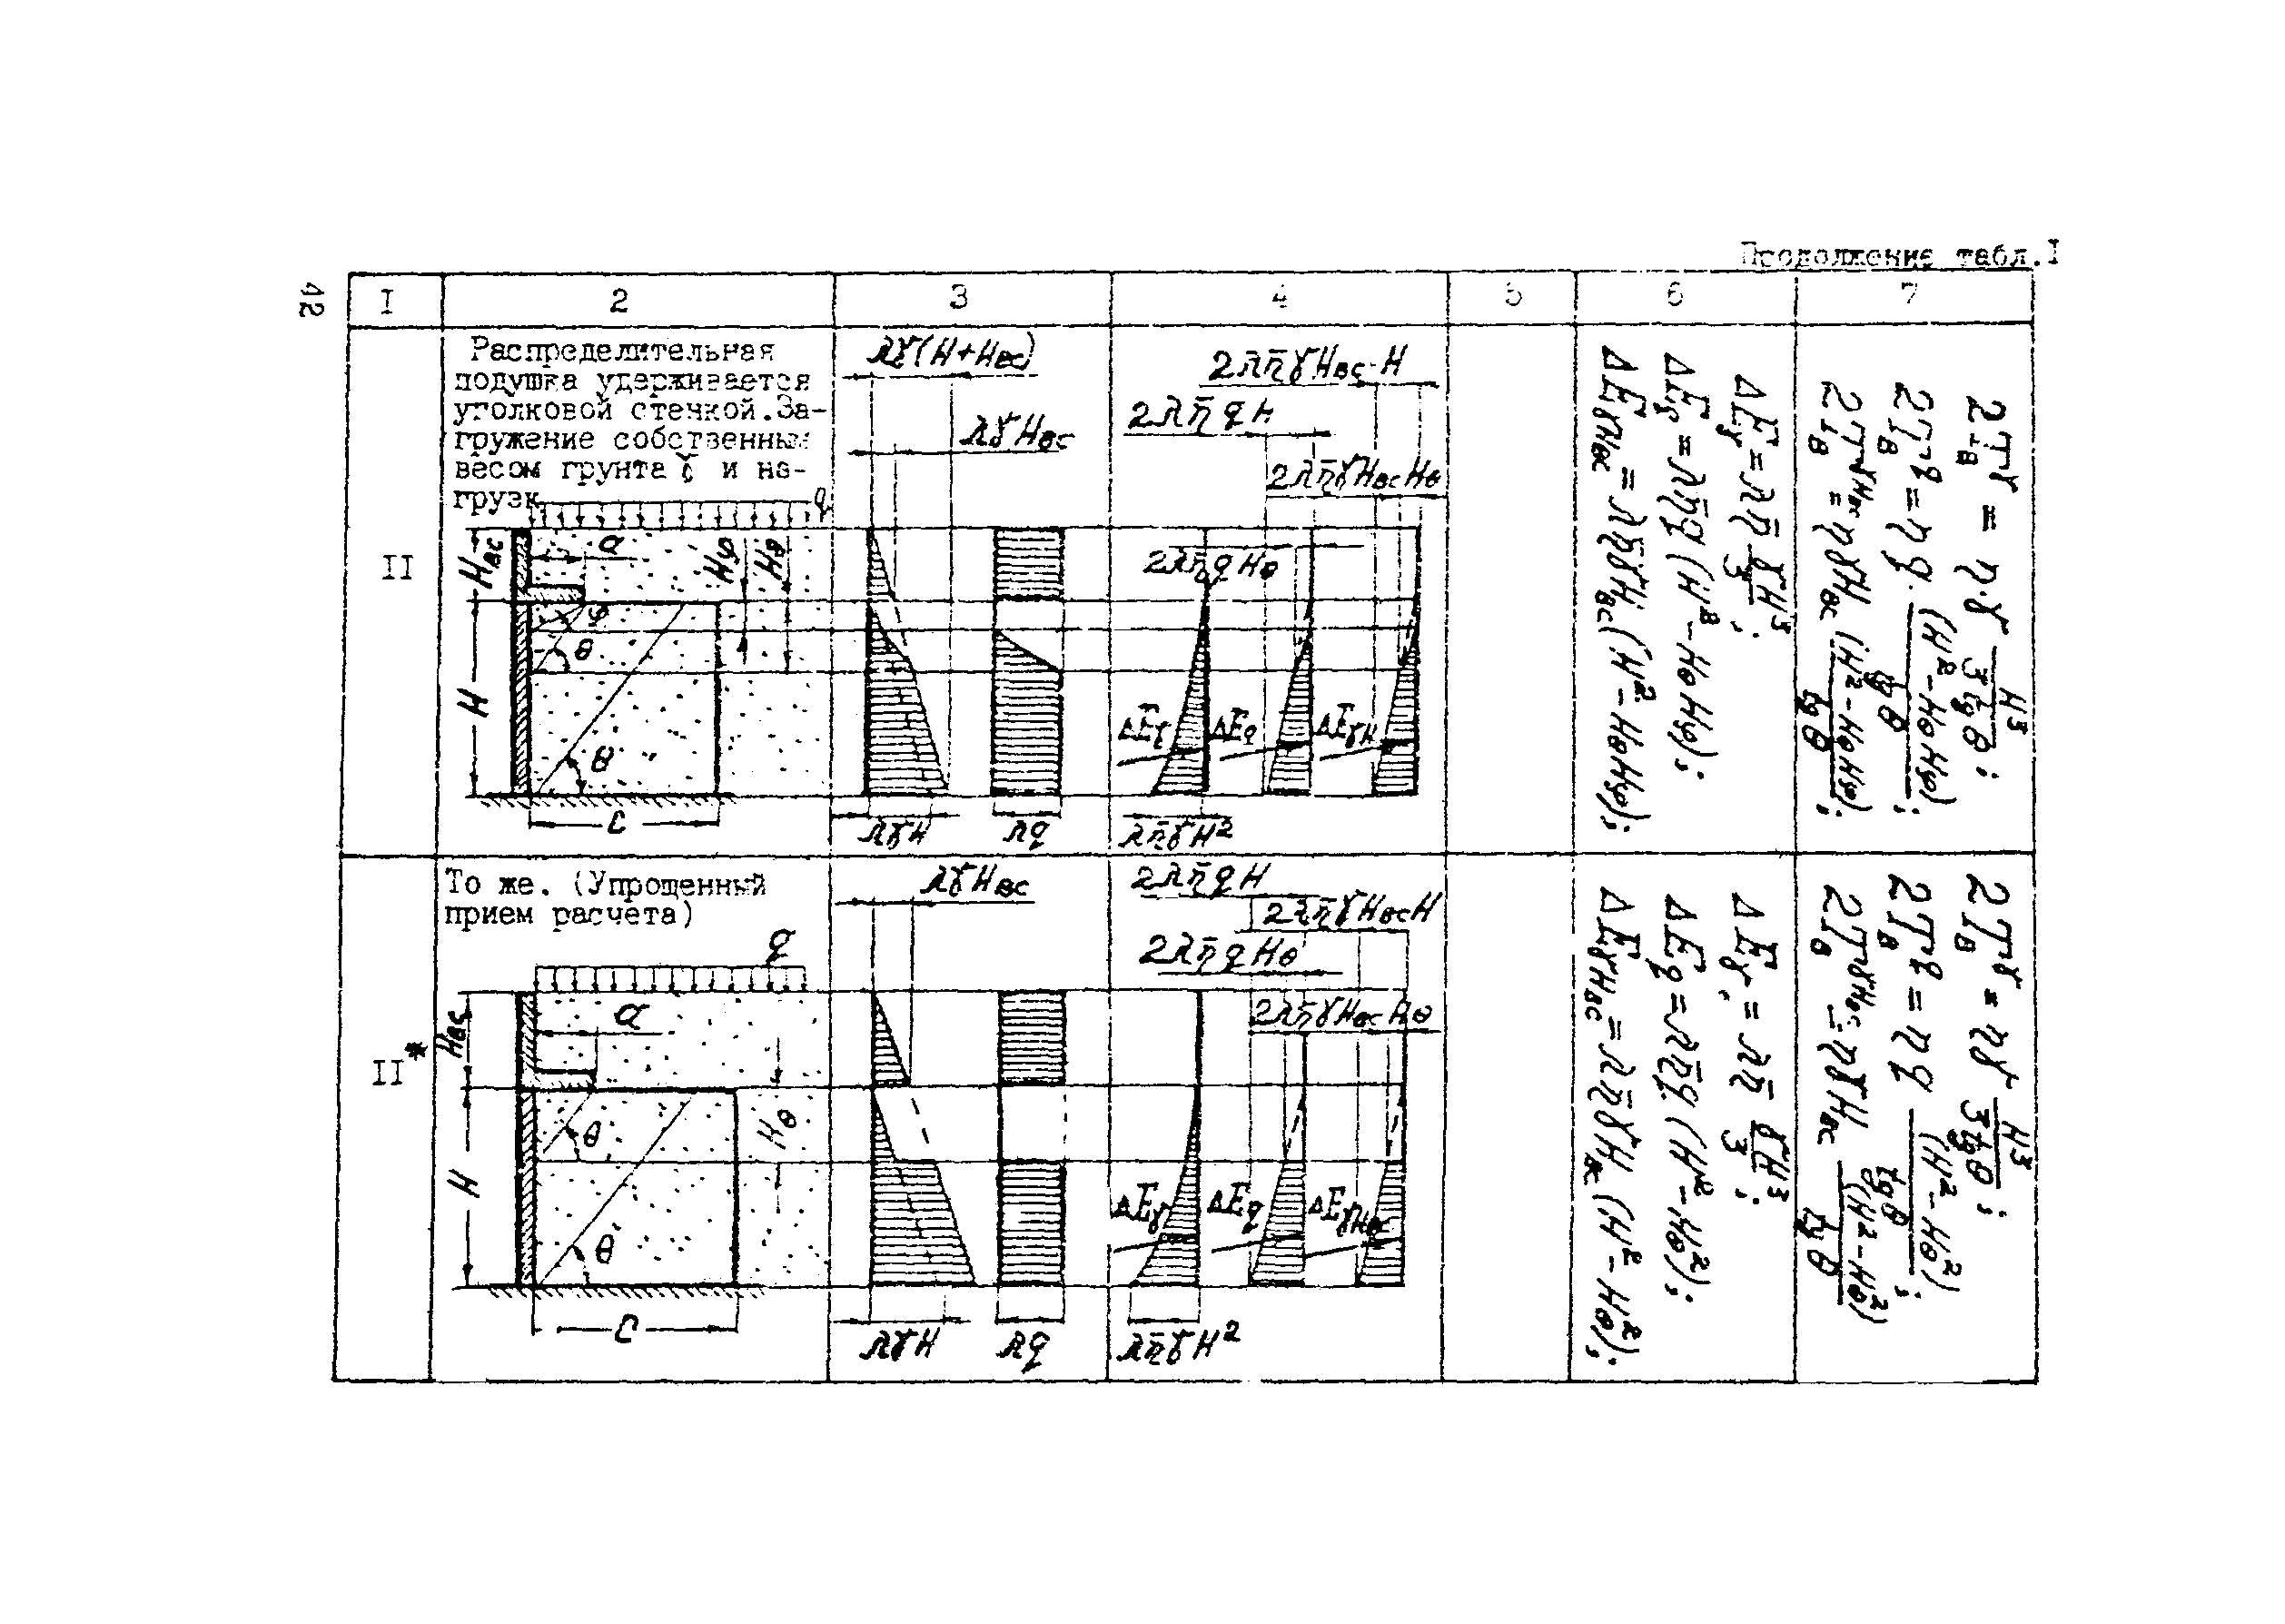 Продолжение табл.I
42
I 2 3 4 5 6 7
II
Распределительная
подушка удерживается
уголковой стенкой.За-
гружение собственным
весом грунта γ и на-
грузк
q
a
Hвс
Hφ
Hθ
φ
θ
H
θ
C
λγ(H+Hвс)
λγHвс
λγH
λq
2λη̄γHвс·H
2λη̄qH
2λη̄γHвсHθ
2λη̄qHθ
ΔEγ
ΔEq
ΔEγH
λη̄γH²
ΔEγ = λη̄ γH³/3;
ΔEq = λη̄q(H²-HθHφ);
ΔEγHвс = λη̄γHвс(H²-HθHφ);
2Tвγ = η·γ H³/3tgθ;
2Tвq = ηq·(H²-HθHφ)/tgθ;
2TвγHвс = ηγHвс (H²-HθHφ)/tgθ;
II*
То же. (Упрощенный
прием расчета)
q
a
Hвс
Hθ
θ
H
θ
C
λγHвс
λγH
λq
2λη̄qH
2λη̄γHвсH
2λη̄qHθ
2λη̄γHвсHθ
ΔEγ
ΔEq
ΔEγHвс
λη̄γH²
ΔEγ = λη̄ γH³/3;
ΔEq = λη̄q(H²-Hθ²);
ΔEγHвс = λη̄γHвс(H²-Hθ²);
2Tвγ = ηγ H³/3tgθ;
2Tвq = ηq (H²-Hθ²)/tgθ;
2TвγHвс = ηγHвс (H²-Hθ²)/tgθ